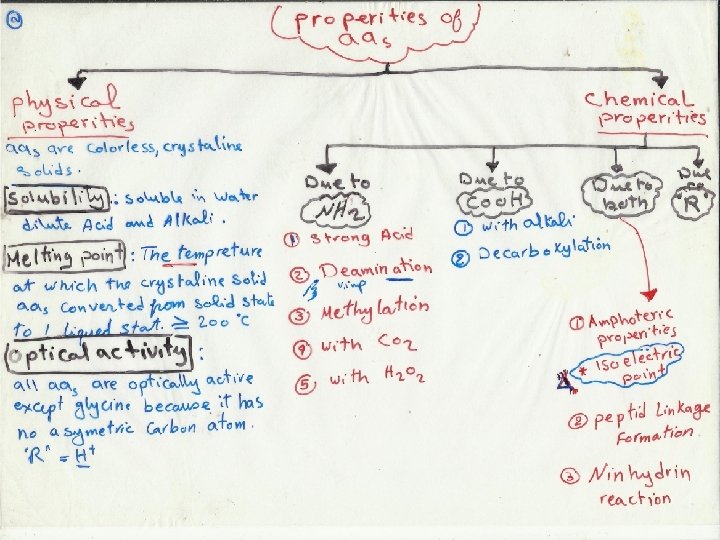 ②
properities of
aas
physical
properities
aas are colorless, crystaline
solids.
Solubility: soluble in water
dilute Acid and Alkali.
Melting point: The tempreture
at which the crystaline solid
aas converted from solid state
to liqued stat. ≥ 200 °C
Optical activity:
all aas are optically active
except glycine because it has
no asymetric carbon atom.
"R" = H+
Chemical
properities
Due to
NH2
① Strong Acid
② Deamination
③ Methylation
④ with CO2
⑤ with H2O2
Due to
COOH
① with alkali
② Decarboxylation
Due to
both
① Amphoteric
properities
* Iso electric
point
② peptid Linkage
Formation
③ Ninhydrin
reaction
Due
to
"R"